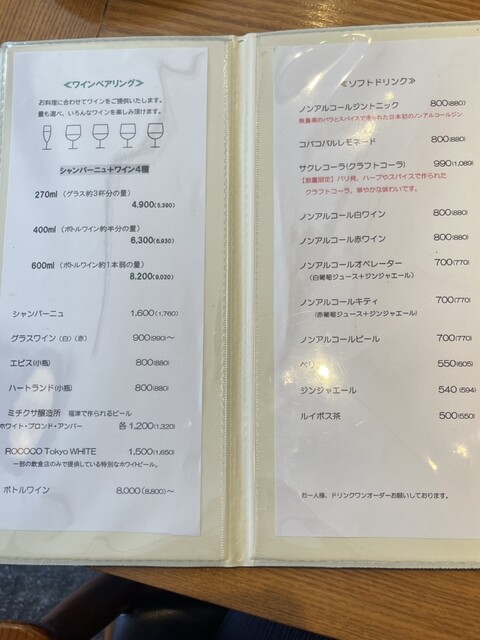 ≪ワインペアリング≫
お料理に合わせてワインをご提供いたします。
量も選べ、いろんなワインを楽しみ頂けます。
シャンパーニュ+ワイン4種
270ml (グラス約3杯分の量)
4,900(5,390)
400ml (ボトルワイン約半分の量)
6,300(6,930)
600ml (ボトルワイン約1本弱の量)
8,200(9,020)
シャンパーニュ 1,600(1,760)
グラスワイン (白) (赤) 900(990)~
エビス(小瓶) 800(880)
ハートランド(小瓶) 800(880)
ミチクサ醸造所 福津で作られるビール
ホワイト・ブロンド・アンバー 各1,200(1,320)
ROCOCO Tokyo WHITE 1,500(1,650)
一部の飲食店のみで提供している特別なホワイトビール。
ボトルワイン 8,000(8,800)~
≪ソフトドリンク≫
ノンアルコールジントニック 800(880)
無農薬のバラとスパイスで造られた日本初のノンアルコールジン
コパコバルレモネード 800(880)
サクレコーラ(クラフトコーラ) 990(1,089)
【数量限定】パリ発、ハーブやスパイスで作られた
クラフトコーラ。華やかな味わいです。
ノンアルコール白ワイン 800(880)
ノンアルコール赤ワイン 800(880)
ノンアルコールオペレーター 700(770)
(白葡萄ジュース+ジンジャエール)
ノンアルコールキティ 700(770)
(赤葡萄ジュース+ジンジャエール)
ノンアルコールビール 700(770)
ペリ 550(605)
ジンジャエール 540(594)
ルイボス茶 500(550)
お一人様、ドリンクワンオーダーお願いしております。